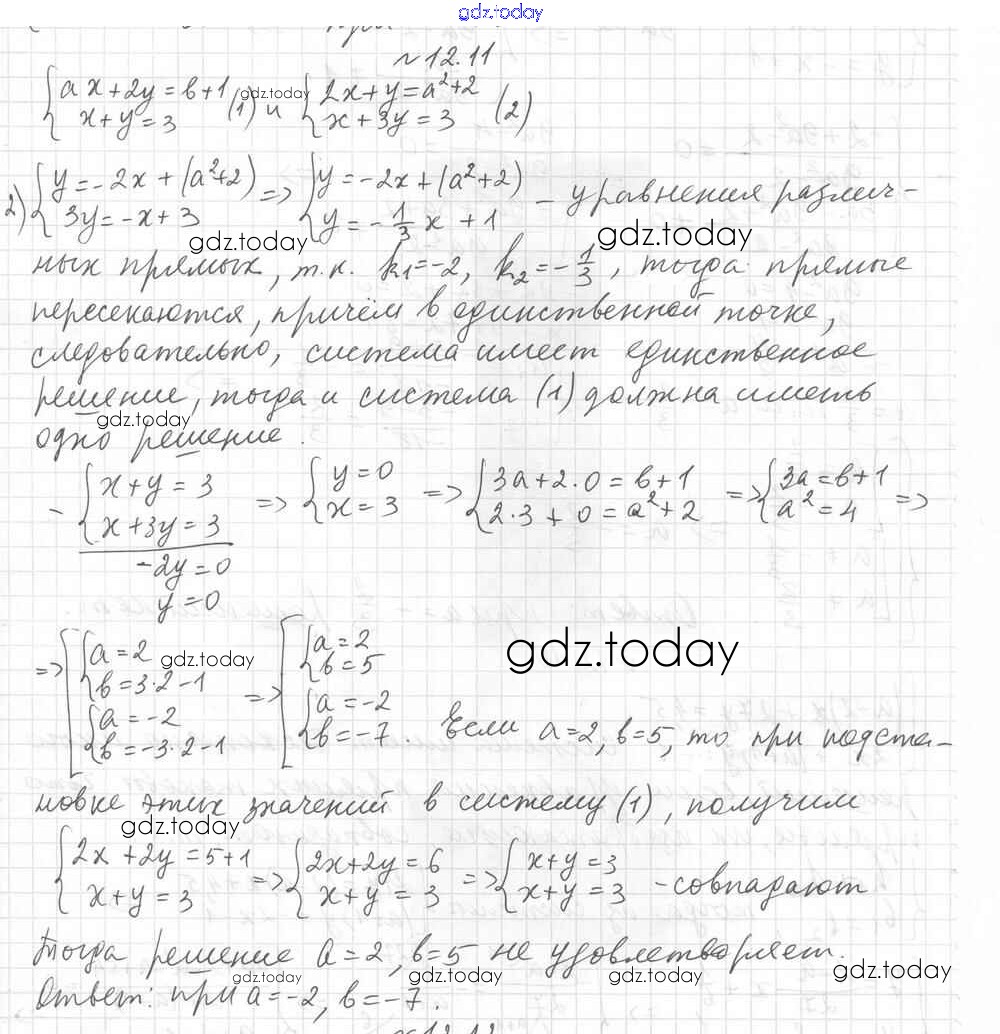 gdz.today
№12.11
{ax+2y=b+1 {x+y=3 (1) и {2x+y=a²+2 {x+3y=3 (2)
gdz.today
2) {y=-2x+(a²+2) {3y=-x+3 => {y=-2x+(a²+2) {y=-1/3 x+1 - уравнения различ-
gdz.today gdz.today
ных прямых, т.к. k₁=-2, k₂=-1/3, тогда прямые
пересекаются, причём в единственной точке,
следовательно, система имеет единственное
решение, тогда и система (1) должна иметь
gdz.today
одно решение.
- {x+y=3 {x+3y=3 => {y=0 {x=3 => {3a+2·0=b+1 {2·3+0=a²+2 => {3a=b+1 {a²=4 =>
-2y=0
y=0
=> [{a=2 {b=3·2-1 {a=-2 {b=-3·2-1 => [{a=2 {b=5 {a=-2 {b=-7 Если a=2, b=5, то при подста-
gdz.today gdz.today
новке этих значений в систему (1), получим
gdz.today
{2x+2y=5+1 {x+y=3 => {2x+2y=6 {x+y=3 => {x+y=3 {x+y=3 - совпадают
Тогда решение a=2, b=5 не удовлетворяет.
gdz.today gdz.today gdz.today gdz.today
Ответ: при a=-2, b=-7.